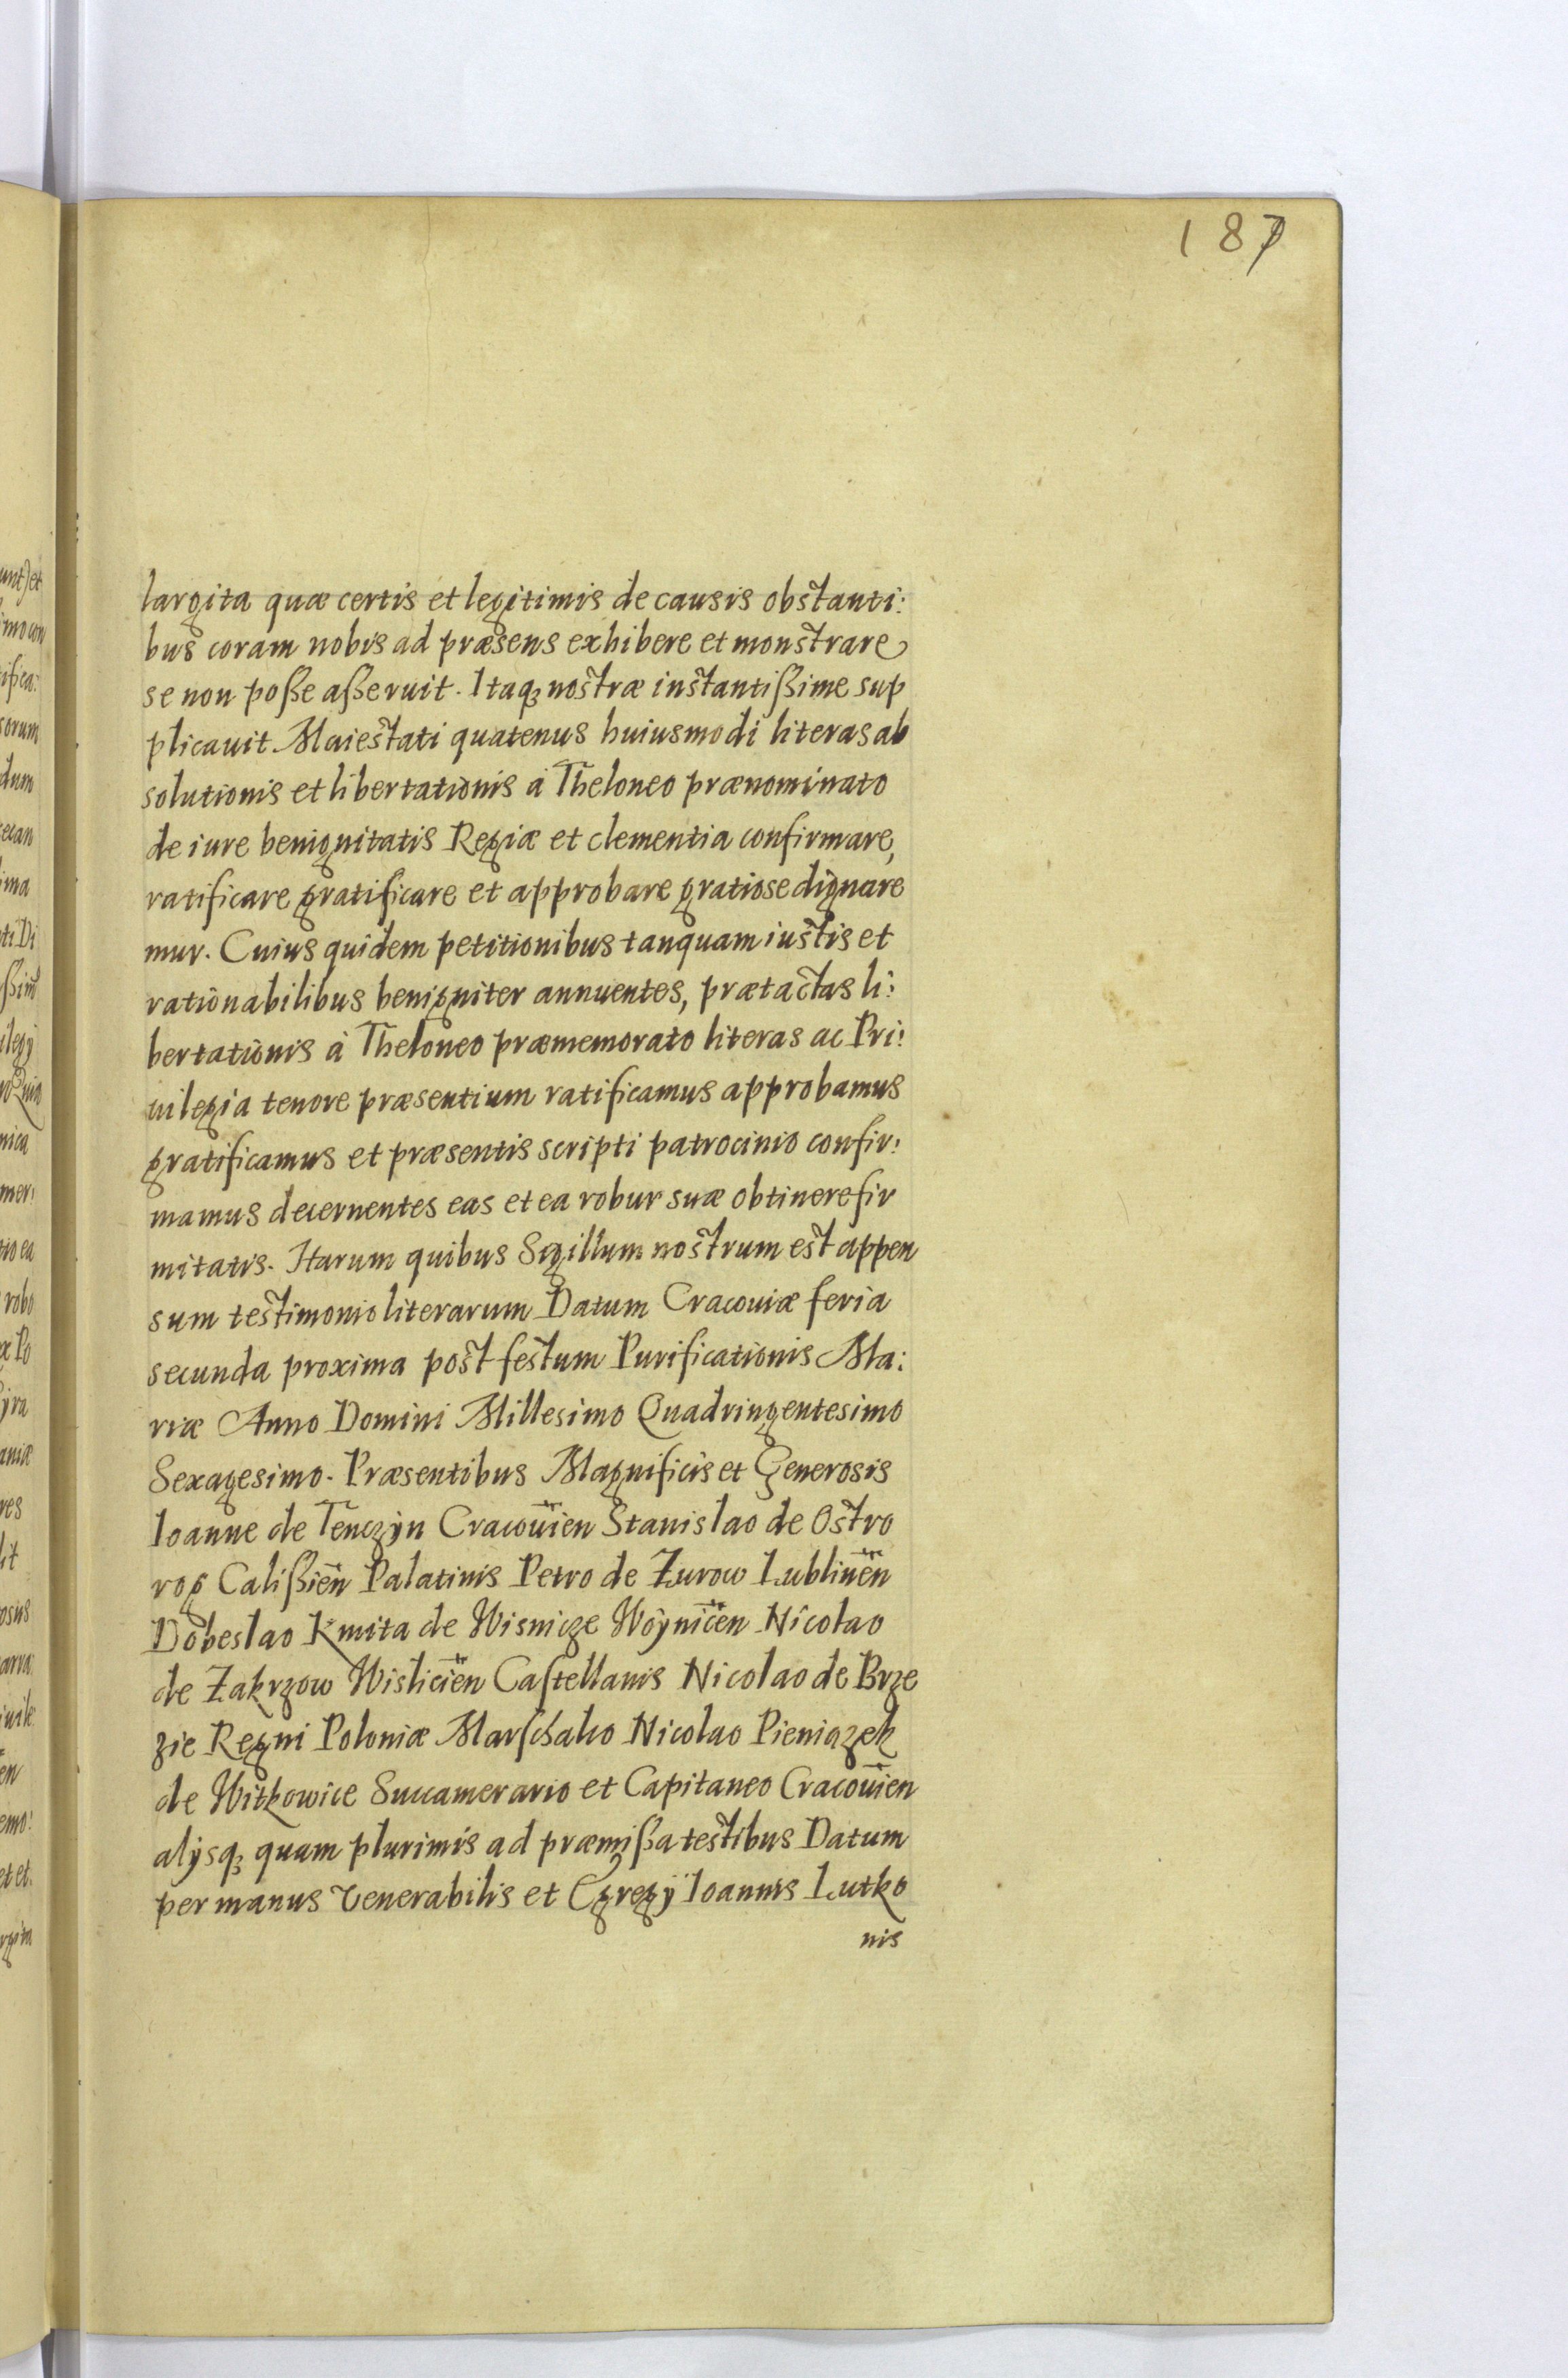 187
largita quæ certis et legitimis de causis obstanti:
bus coram nobis ad præsens exhibere et monstrare
se non poße aßeruit. Itaqꝫ nostræ instantißime sup
plicauit Maiestati quatenus huiusmodi literas ab
solutionis et libertationis à Theloneo prænominato
de iure benignitatis Regiæ et clementia confirmare,
ratificare gratificare et approbare gratiose dignare
mur. Cuius quidem petitionibus tanquam iustis et
rationabilibus benigniter annuentes, prætactas li:
bertationis à Theloneo præmemorato literas ac Pri:
uilegia tenore præsentium ratificamus approbamus
gratificamus et præsentis scripti patrocinio confir:
mamus decernentes eas et ea robur suæ obtinere fir
mitatis. Harum quibus Sigillum nostrum est appen
sum testimonio literarum Datum Cracouiæ feria
secunda proxima post festum Purificationis Ma:
riæ Anno Domini Millesimo Quadringentesimo
Sexagesimo. Præsentibus Magnificis et Generosis
Ioanne de Tenczyn Cracouien̄ Stanislao de Ostro
rog Calißien̄ Palatinis Petro de Zurow Lublinen̄
Dobeslao Kmita de Wisnicze Woynicen̄ Nicolao
de Zakrzow Wislicien̄ Castellanis Nicolao de Brze
zie Regni Poloniæ Marschalco Nicolao Pieniazek
de Witkowice Succamerario et Capitaneo Cracouien̄
alÿsqꝫ quam plurimis ad præmißa testibus Datum
per manus Venerabilis et Egregÿ Ioannis Lutko
nis